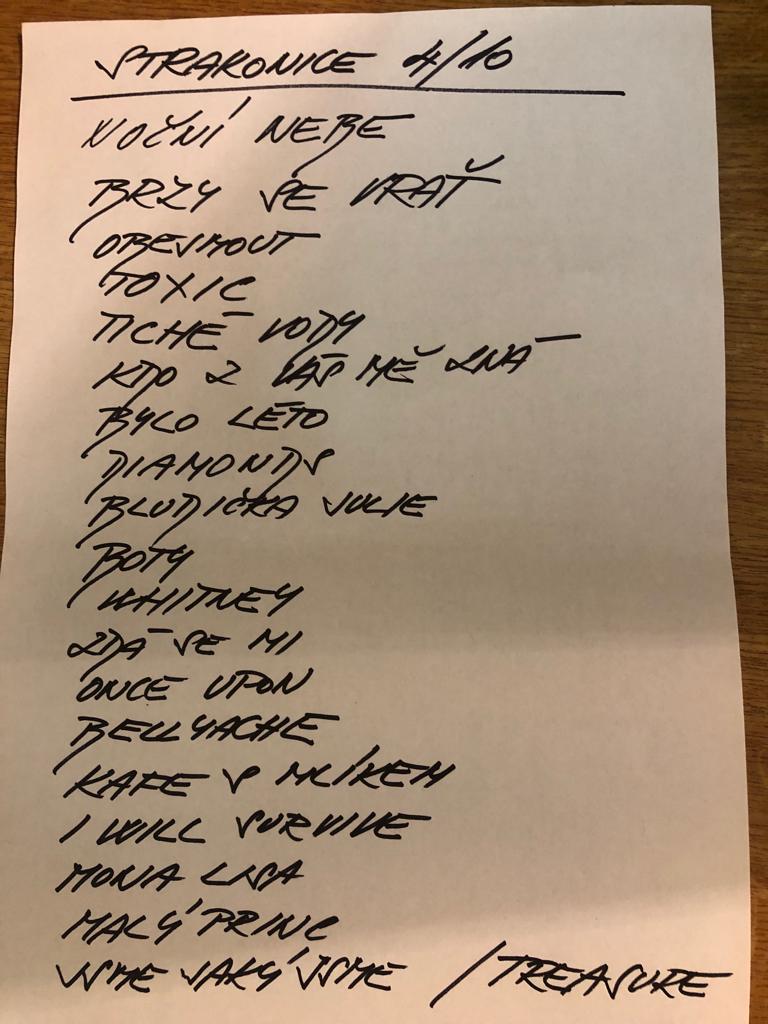 STRAKONICE 4/10
NOČNÍ NEBE
BRZY SE VRAŤ
OBEJMOUT
TOXIC
TICHÉ VODY
KDO Z VÁS MĚ ZNÁ
BYLO LÉTO
DIAMONDS
BLUDIČKA JULIE
BOTY
WHITNEY
ZDÁ SE MI
ONCE UPON
BELLYACHE
KAFE S MLÍKEM
I WILL SURVIVE
MONA LISA
MALÝ PRINC
JSME JAKÝ JSME / TREASURE